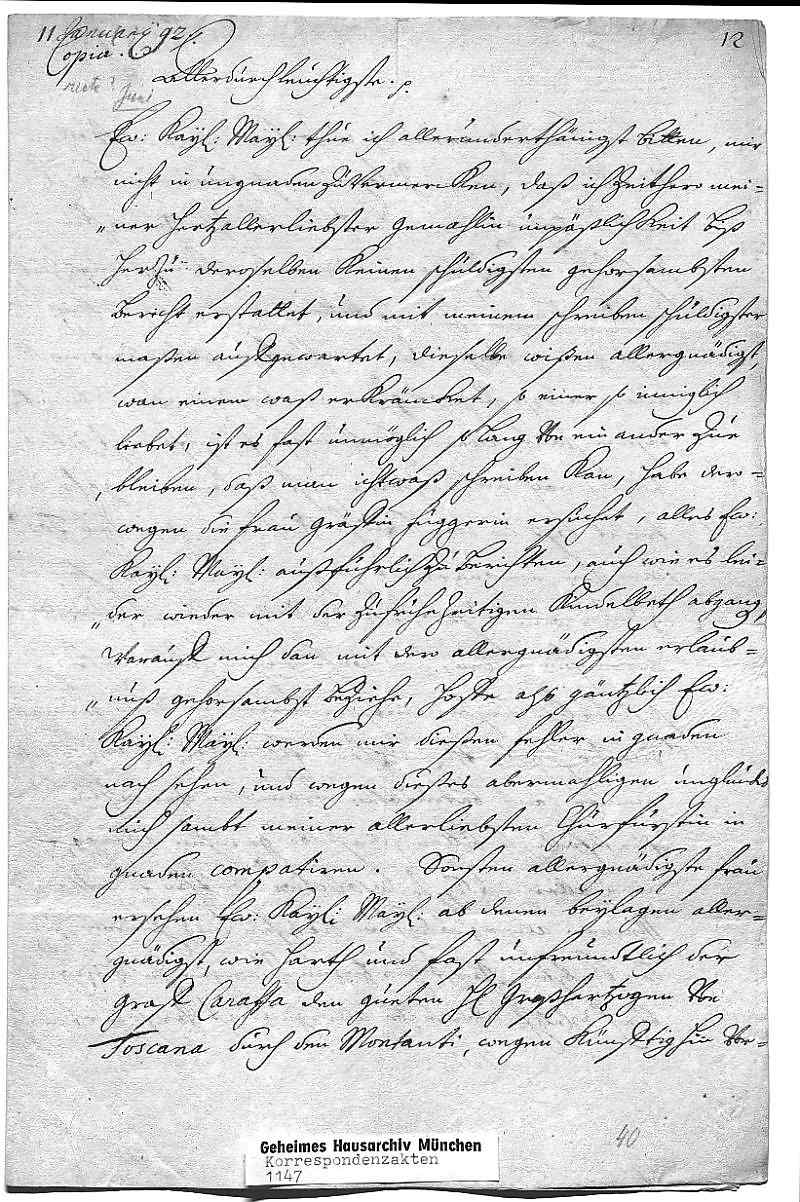 11 January 92.
12
Copia.
recte?
Juni
Allerdurchleuchtigste. p.
Ew: Kayl: Mayl: thue ich alleründerthänigst bitten, mir
nicht in ungnaden zu Vermercken, daß ich Zeithero mei=
ner hertzallerliebster Gemahlin unpäßlichkeit biß
herzu deroselben keinen schuldigsten gehorsambsten
bericht erstattet, und mit meinem schreiben schuldigster
maßen aufgewartet, dieselbe wißen allergnädigst,
wan einem waß erkräncket, so einer so inniglich
liebet, ist es fast unmöglich so lang Von ein ander zue
bleiben, daß man ichtwaß schreiben kan, habe dero=
wegen die frau gräffin fuggerin ersuchet, alles Ew:
Kayl: Mayl: außführlich zu berichten, auch wie es lei=
der wieder mit der zufrühezeitigen Kindelbeth abgang,
Worauff mich dan mit dero allergnädigsten erlaub=
nuß gehorsambst beziehe, hoffe also gäntzlich Ew:
Kayl: Mayl: werden mir dießen fehler in gnaden
nach sehen, und wegen dießes abermahligen unglücks
mich sambt meiner allerliebsten Churfürstin in
gnaden compatiren. Sonsten allergnädigste frau
ersehen Ew: Kayl: Mayl: ab denen beylagen aller=
gnädigst, wie harth und fast unfreundtlich der
graff Caraffa den gueten H Großhertzogen Von
Toscana durch den Montanti, wegen künfftig hin Ver=
40
Geheimes Hausarchiv München
Korrespondenzakten
1147